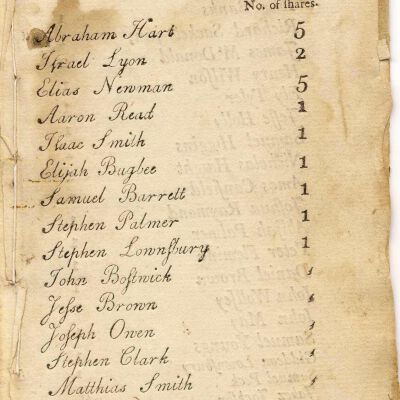 No. of ſhares.
Abraham Hart 5
Iſrael Lyon 2
Elias Newman 5
Aaron Read 1
Iſaac Smith 1
Elijah Bugbee 1
Samuel Barrett 1
Stephen Palmer 1
Stephen Lownſbury 1
John Boſtwick
Jeſse Brown
Joſeph Owen
Stephen Clark
Matthias Smith